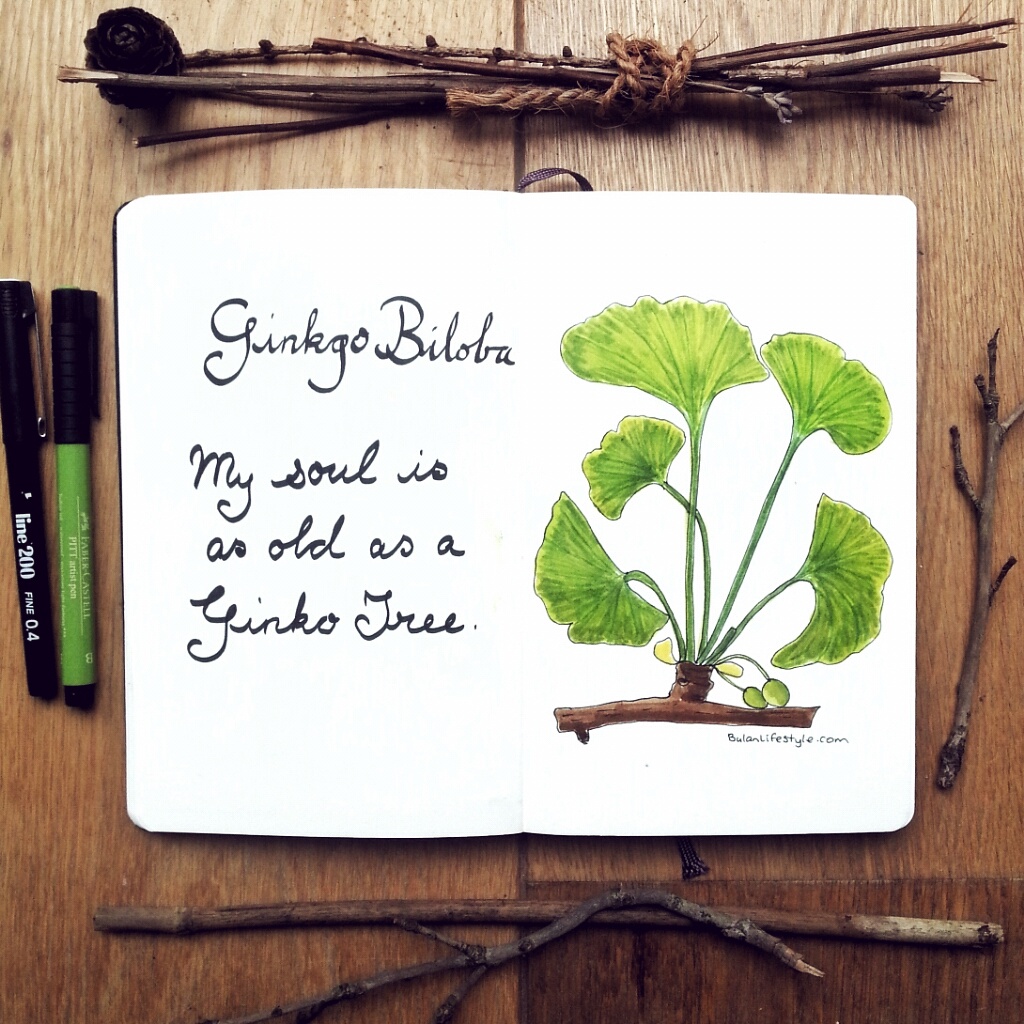 Ginkgo Biloba
My soul is
as old as a
Ginko Tree.
BulanLifestyle.com
line 200 FINE 0.4
FABER-CASTELL
PITT artist pen
B